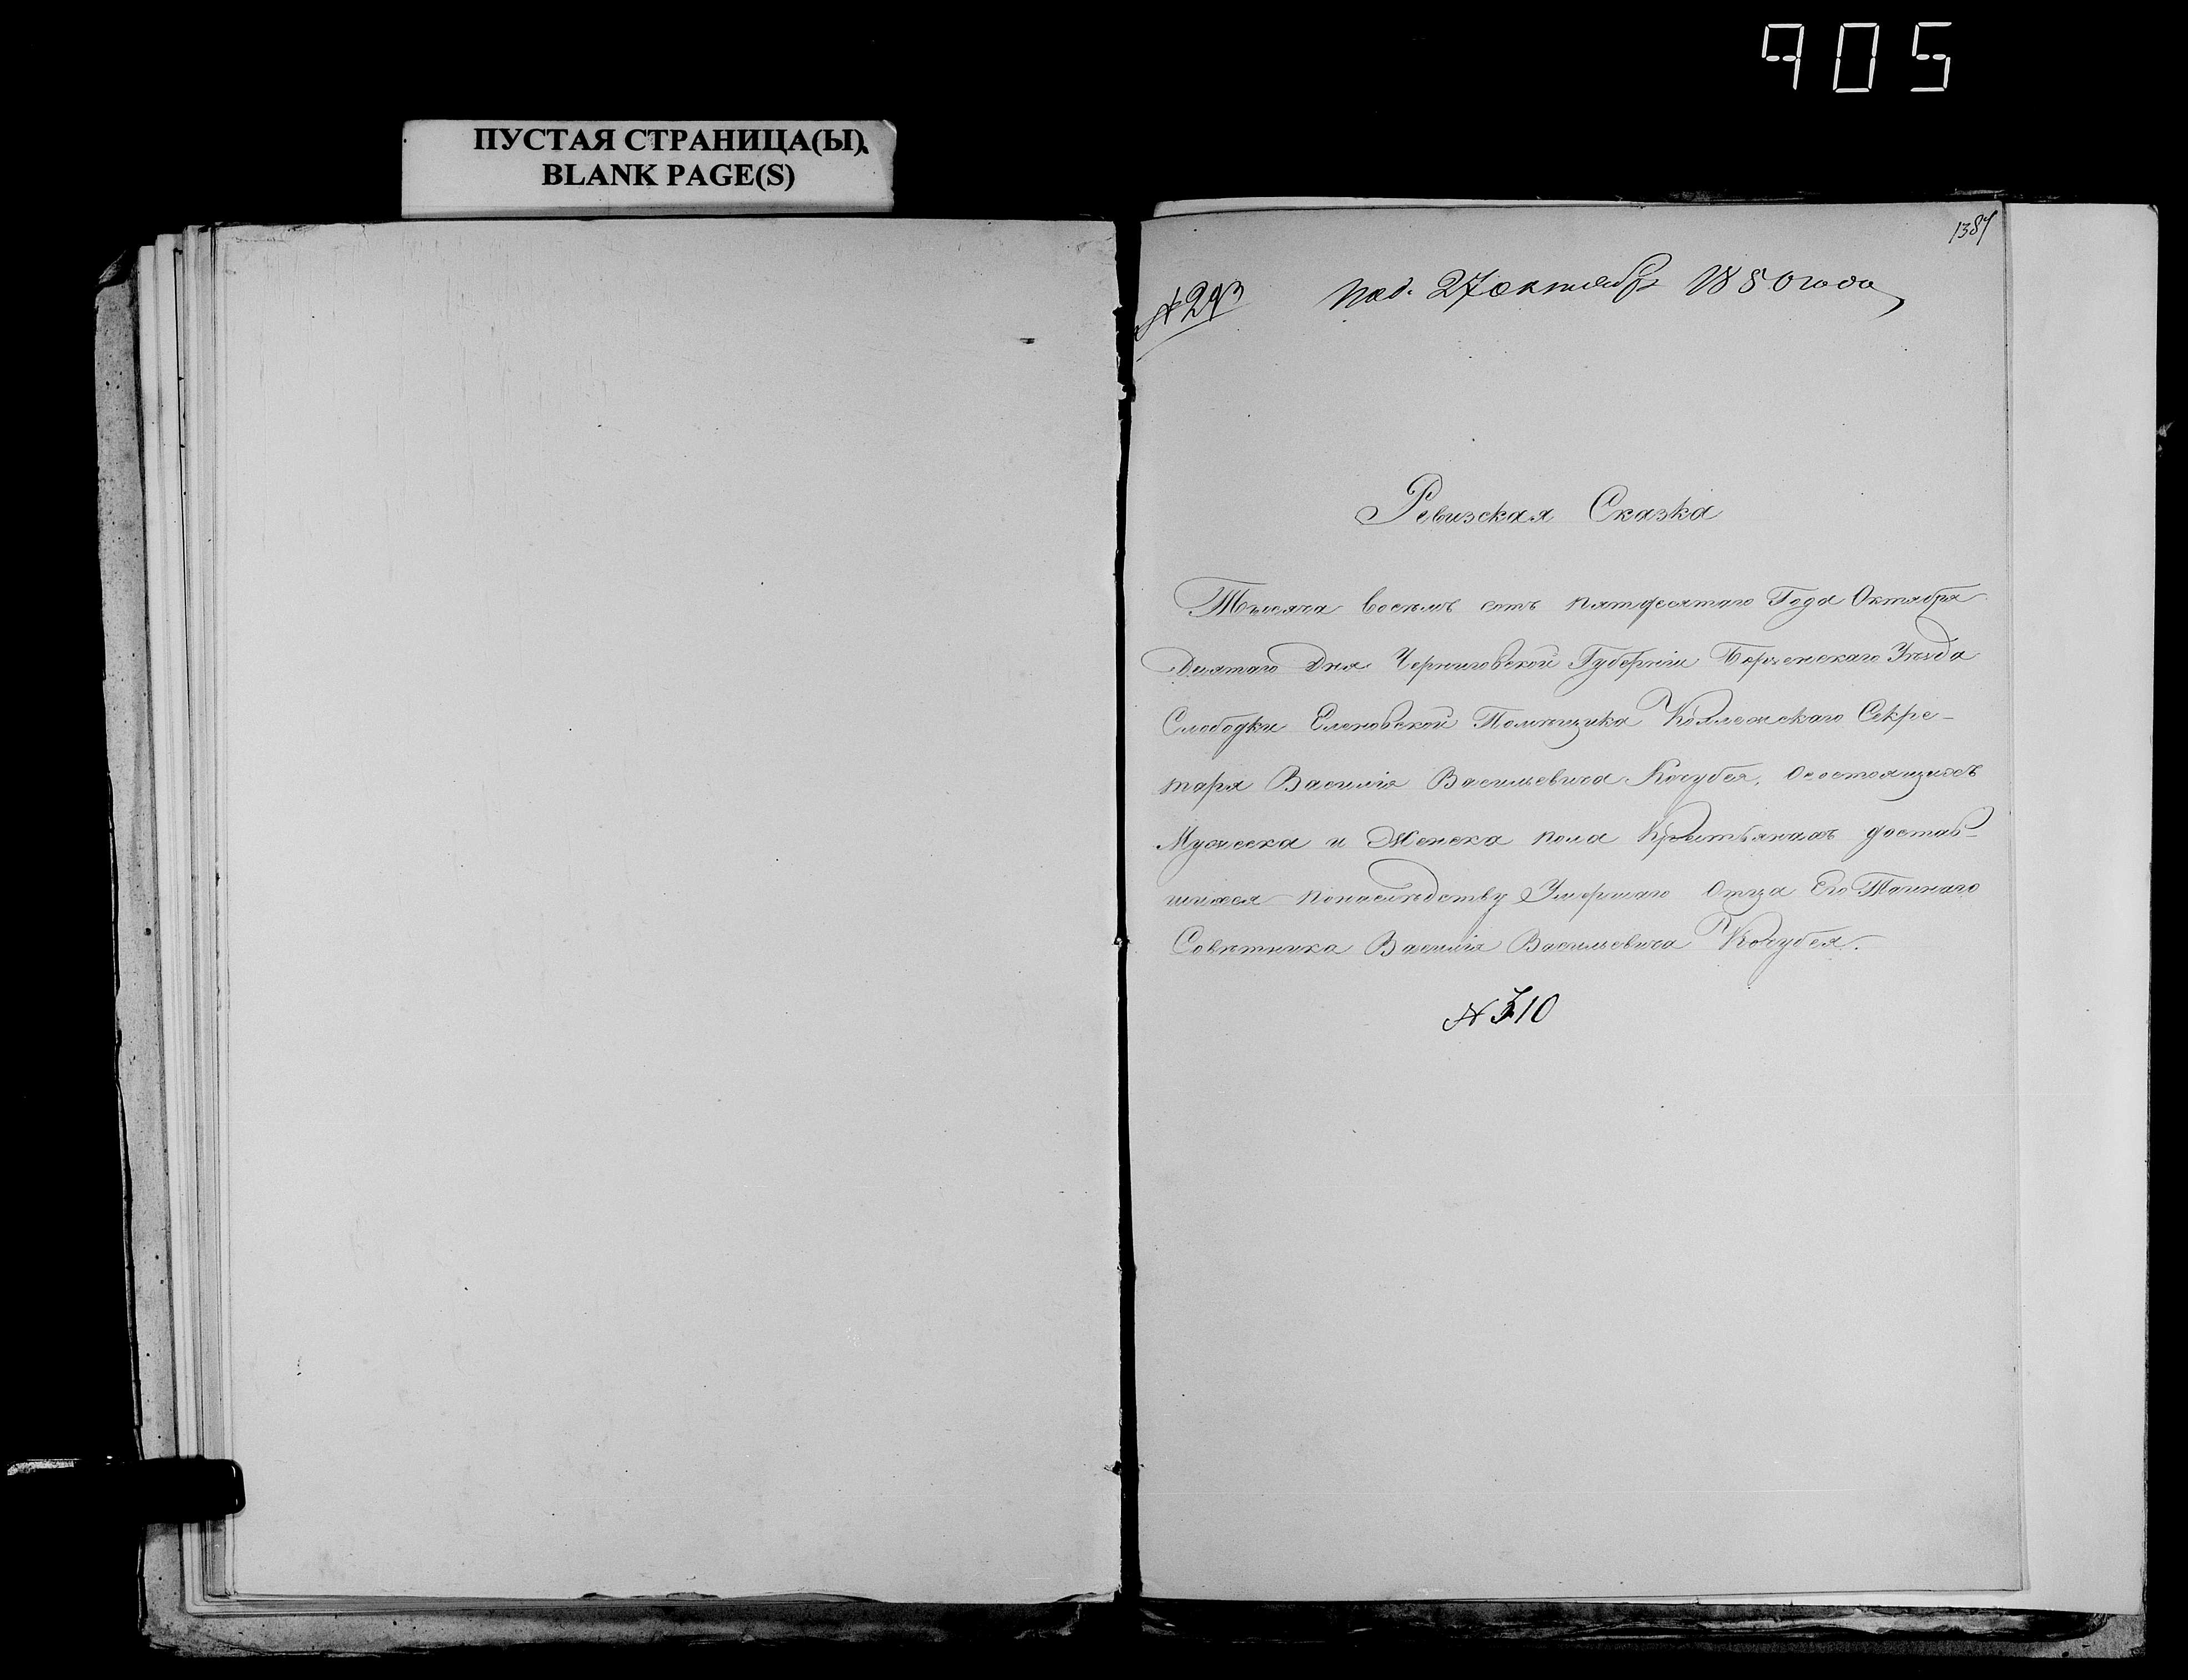 905
ПУСТАЯ СТРАНИЦА(Ы)
BLANK PAGE(S)
1387
№ 293 Под. 27 октября 1850 года
Ревизская Сказка
Тысяча восемъ сотъ пятдесятаго Года Октября
Девятаго Дня Черниговской Губерніи Борзенскаго Уѣзда
Слободки Еленовской Помѣщика Коллежскаго Секре-
таря Василія Васильевича Кочубея, о состоящихъ
Мужеска и Женска пола Крестьянахъ достав-
шихся по наслѣдству Умершаго Отца Его Тайнаго
Совѣтника Василія Васильевича Кочубея.
№ 310